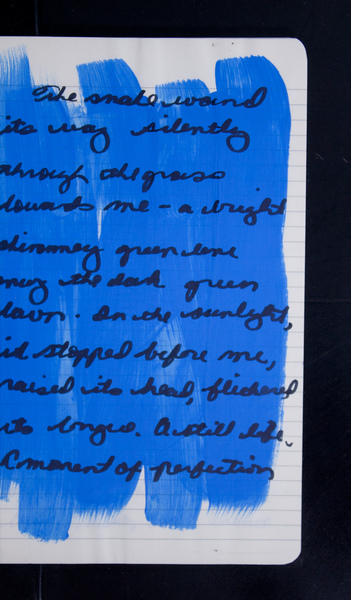 The snake wound
its way silently
through the grass
towards me - a bright
shimmey green line
the dark green
lawn. In the sunlight,
it stopped before me,
raised its head, flickered
its tongue. A still life.
A moment of perfection